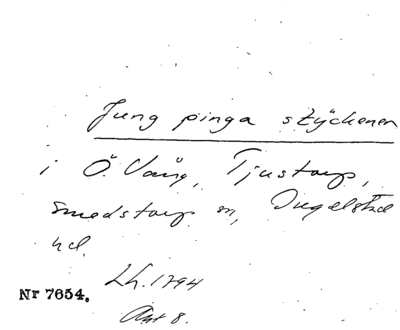 Jung pinga stÿckenen
i Ö. Vång, Tjustorp,
Smedstorp sn, Ingelstad
hd.
Lh. 1794
Nr 7654.
Akt 8.